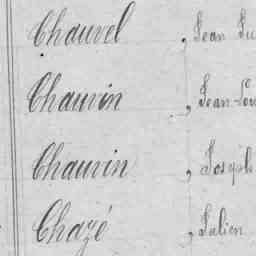 Chauvel , Jean
Chauvin , Jean-Lou
Chauvin , Joseph
Chazé , Julien